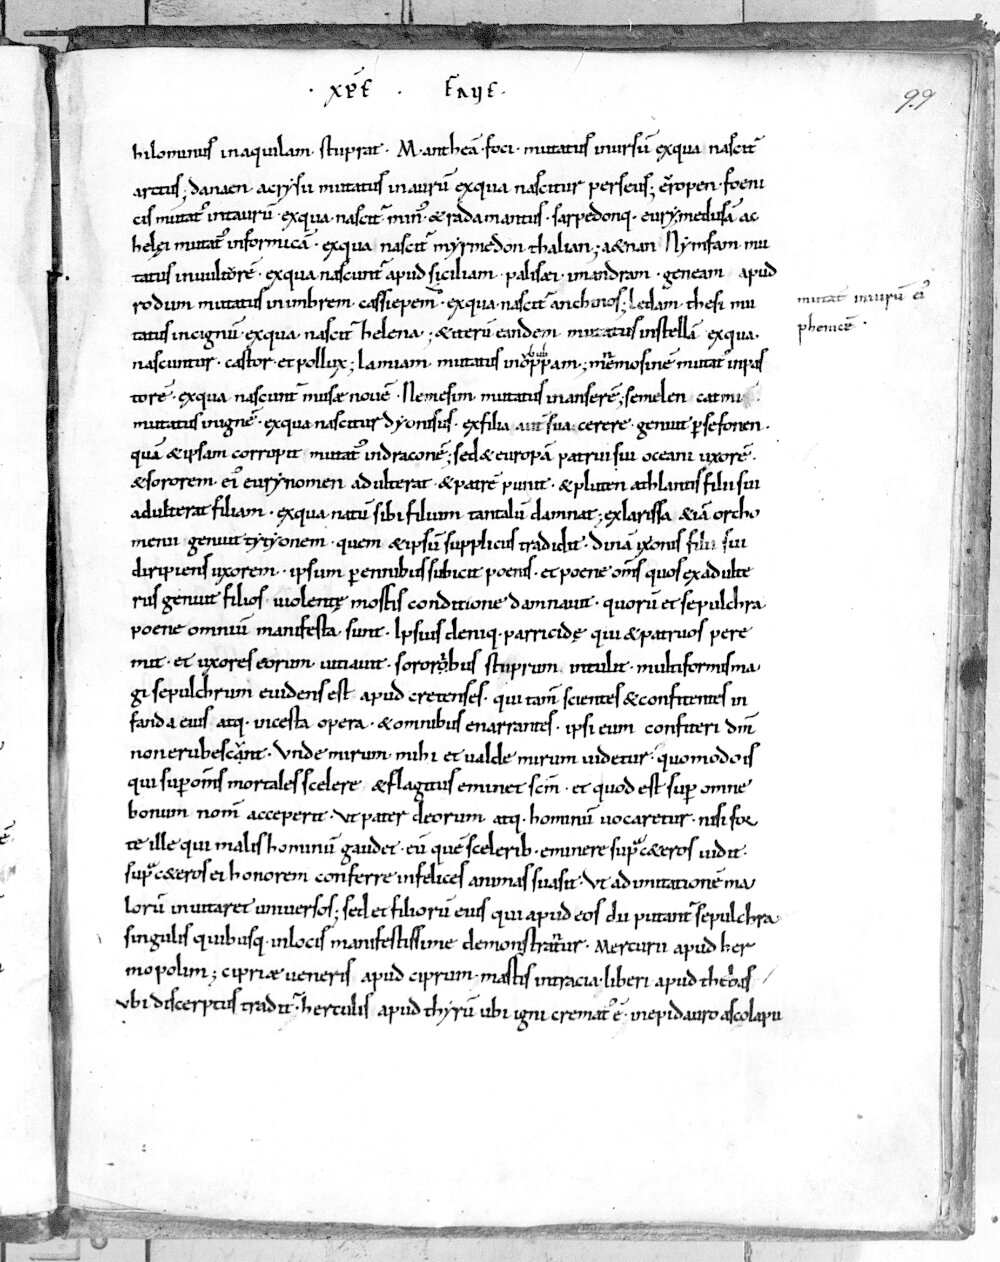 · xpē · faue ·
99
hilominus inaquilam · stuprat · M·antheā·foci · mutatus inursū exqua nascit᷑
arctus; danaen · acrysii mutatus inaurū exqua nascitur perseus; eropen·foeni
cis mutat᷒ intaurū · exqua·nascit᷑ min᷒ & radamantus · sarpedonq· eurymedusā ac
helęi mutat᷒ informicā · exqua nascit᷑ myrmedon thalian; aetnan Nymfam mu
tatus inuultorē · exqua nascunt᷑ apud siciliam · palisaei · imandram · geneam apud
rodum mutatus inimbrem · exqua·nascit᷑ anchinos; ledam · thesi mu
tatus incignū·exqua·nascit᷑ helena·; &iterū eandem mutatus instellā exqua·
nascuntur · castor·et pollux; lamiam · mutatus; mnemosinē mutat᷒ inpas
torē·exqua nascunt᷑ musæ nouē · Nemesim · mutatus inanserē; semelen catmi
mutatus inignē·exqua nascitur dyonisus · exfilia sua·cerere·genuit psefonen·
quā &ipsam corrupit mutat᷒ indraconē; sed & europā patrui sui oceani uxorē·
&sororem · ei᷒ eurynomen adulterat · &patrē punit · &pluten athlantis filii sui
adulterat filiam · exqua natū sibi filium tantalū damnat; exlarissa &iā orcho
meni genuit tytyonem · quem &ipsū suppliciis tradidit · dinā ixonis filii sui
diripiens uxorem · ipsum pennibus subicit poenis · et poene om̄s quos exadulte
riis genuit filios uiolentę mortis conditione damnauit · quorū et sepulchra
poene omniū manifesta sunt · Ipsius deniq·parricidę qui & patruos pere
mit · et uxores eorum uitiauit · sororibus stuprum intulit · multiformis ma
gi sepulchrum euidens est apud cretenses · qui tam̄ scientes & confitentes in
fanda eius atq· incesta opera · &omnibus enarrantes · ipsi eum confiteri dm̄
nonerubescant · Vnde mirum mihi et ualde mirum uidetur · quomodo is
qui sup om̄s mortales scelere &flagitiis eminet scm̄ · et quod est sup omne
bonum nom̄ acceperit · Vt pater deorum atq· hominū uocaretur · nisi for
te ille qui malis hominū gaudet · eū quē scelerib· eminere supra ceteros uidit ·
supra ceteros ei honorem conferre infelices animas suasit · Vt ad imitationē ma
lorū inuitaret uniuersos; sed et filiorū eius qui apud eos dii putant᷑ sepulchra
singulis quibusq· inlocis manifestissime demonstrantur · Mercurii apud her
mopolim; cipriæ ueneris apud ciprum·martis intracia·liberi apud thebas
Vbi discerptus tradit᷑·herculis apud thyrū ubi igni cremat᷒ ē·inepidauro ascolapii
mutat᷒ inaurū ei᷒
phenicē·